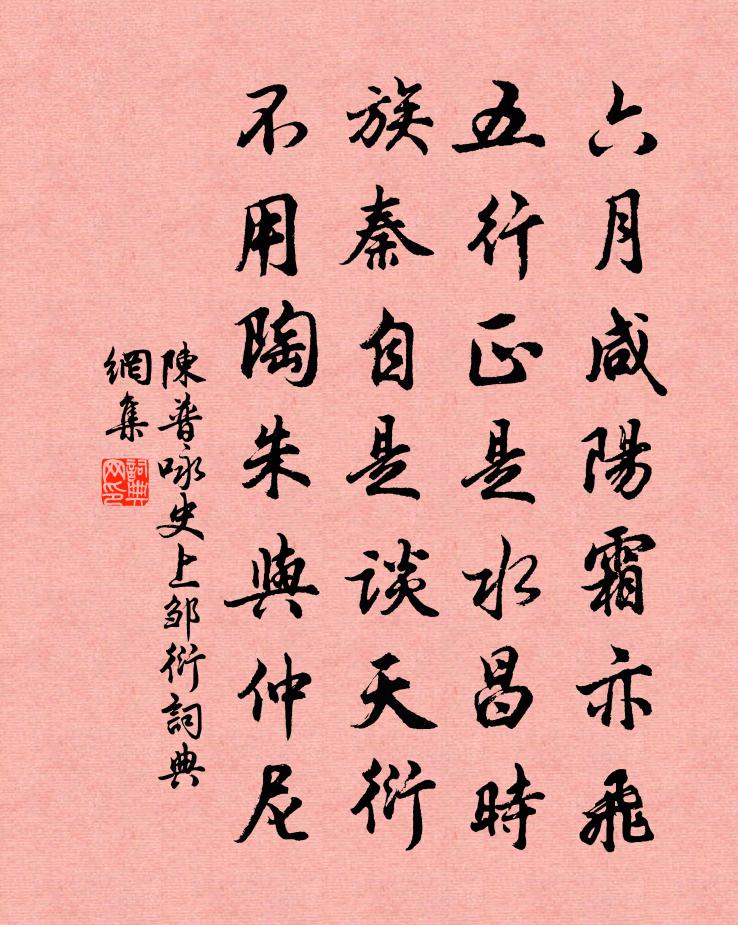 六月咸陽霜亦飛
五行正是水昌時
族秦自是談天衍
不用陶朱與仲尼
陳普咏史上邹衍詞典
網集
詞典网印